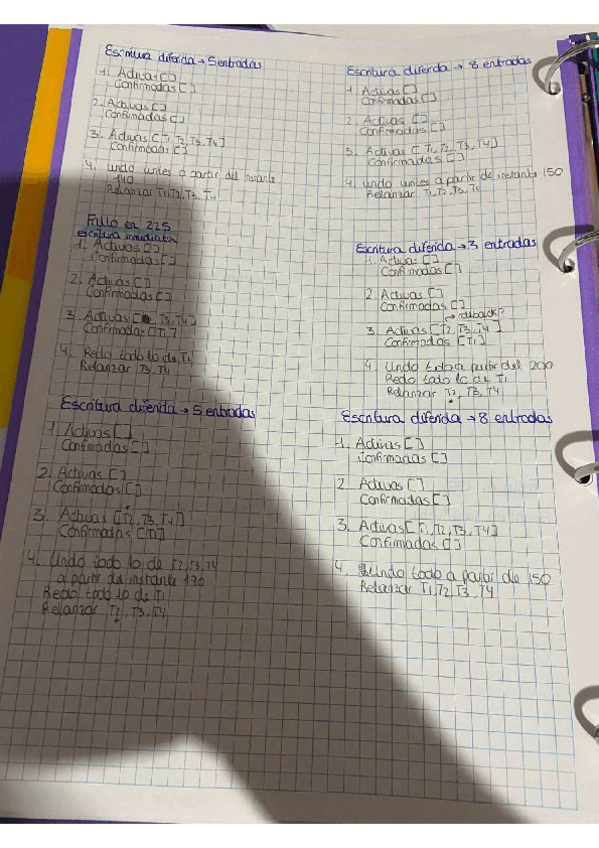 Escritura diferida → 5 entradas
1. Activas []
Confirmadas []
2. Activas []
Confirmadas []
3. Activas [T1, T2, T3, T4]
Confirmadas []
4. undo antes a partir del instante
140
Relanzar T1, T2, T3, T4
Fallo en 225
escritura inmediata
1. Activas []
Confirmadas []
2. Activas []
Confirmadas []
3. Activas [T3, T4]
Confirmadas [T1]
4. Redo todo lo de T1
Relanzar T3, T4
Escritura diferida → 5 entradas
1. Activas []
Confirmadas []
2. Activas []
Confirmadas []
3. Activas [T2, T3, T4]
Confirmadas [T1]
4. Undo todo lo de T2, T3, T4
a partir del instante 190
Redo todo lo de T1
Relanzar T2, T3, T4
Escritura diferida → 8 entradas
1. Activas []
Confirmadas []
2. Activas []
Confirmadas []
3. Activas [T1, T2, T3, T4]
Confirmadas []
4. undo antes a partir de instante 150
Relanzar T1, T2, T3, T4
Escritura diferida → 3 entradas
1. Activas []
Confirmadas []
2. Activas []
Confirmadas []
→ rollback?
3. Activas [T2, T3, T4]
Confirmadas [T1]
4. Undo todo a partir del 200
Redo todo lo de T1
Relanzar T2, T3, T4
Escritura diferida → 8 entradas
1. Activas []
Confirmadas []
2. Activas []
Confirmadas []
3. Activas [T1, T2, T3, T4]
Confirmadas []
4. Undo todo a partir de 150
Relanzar T1, T2, T3, T4